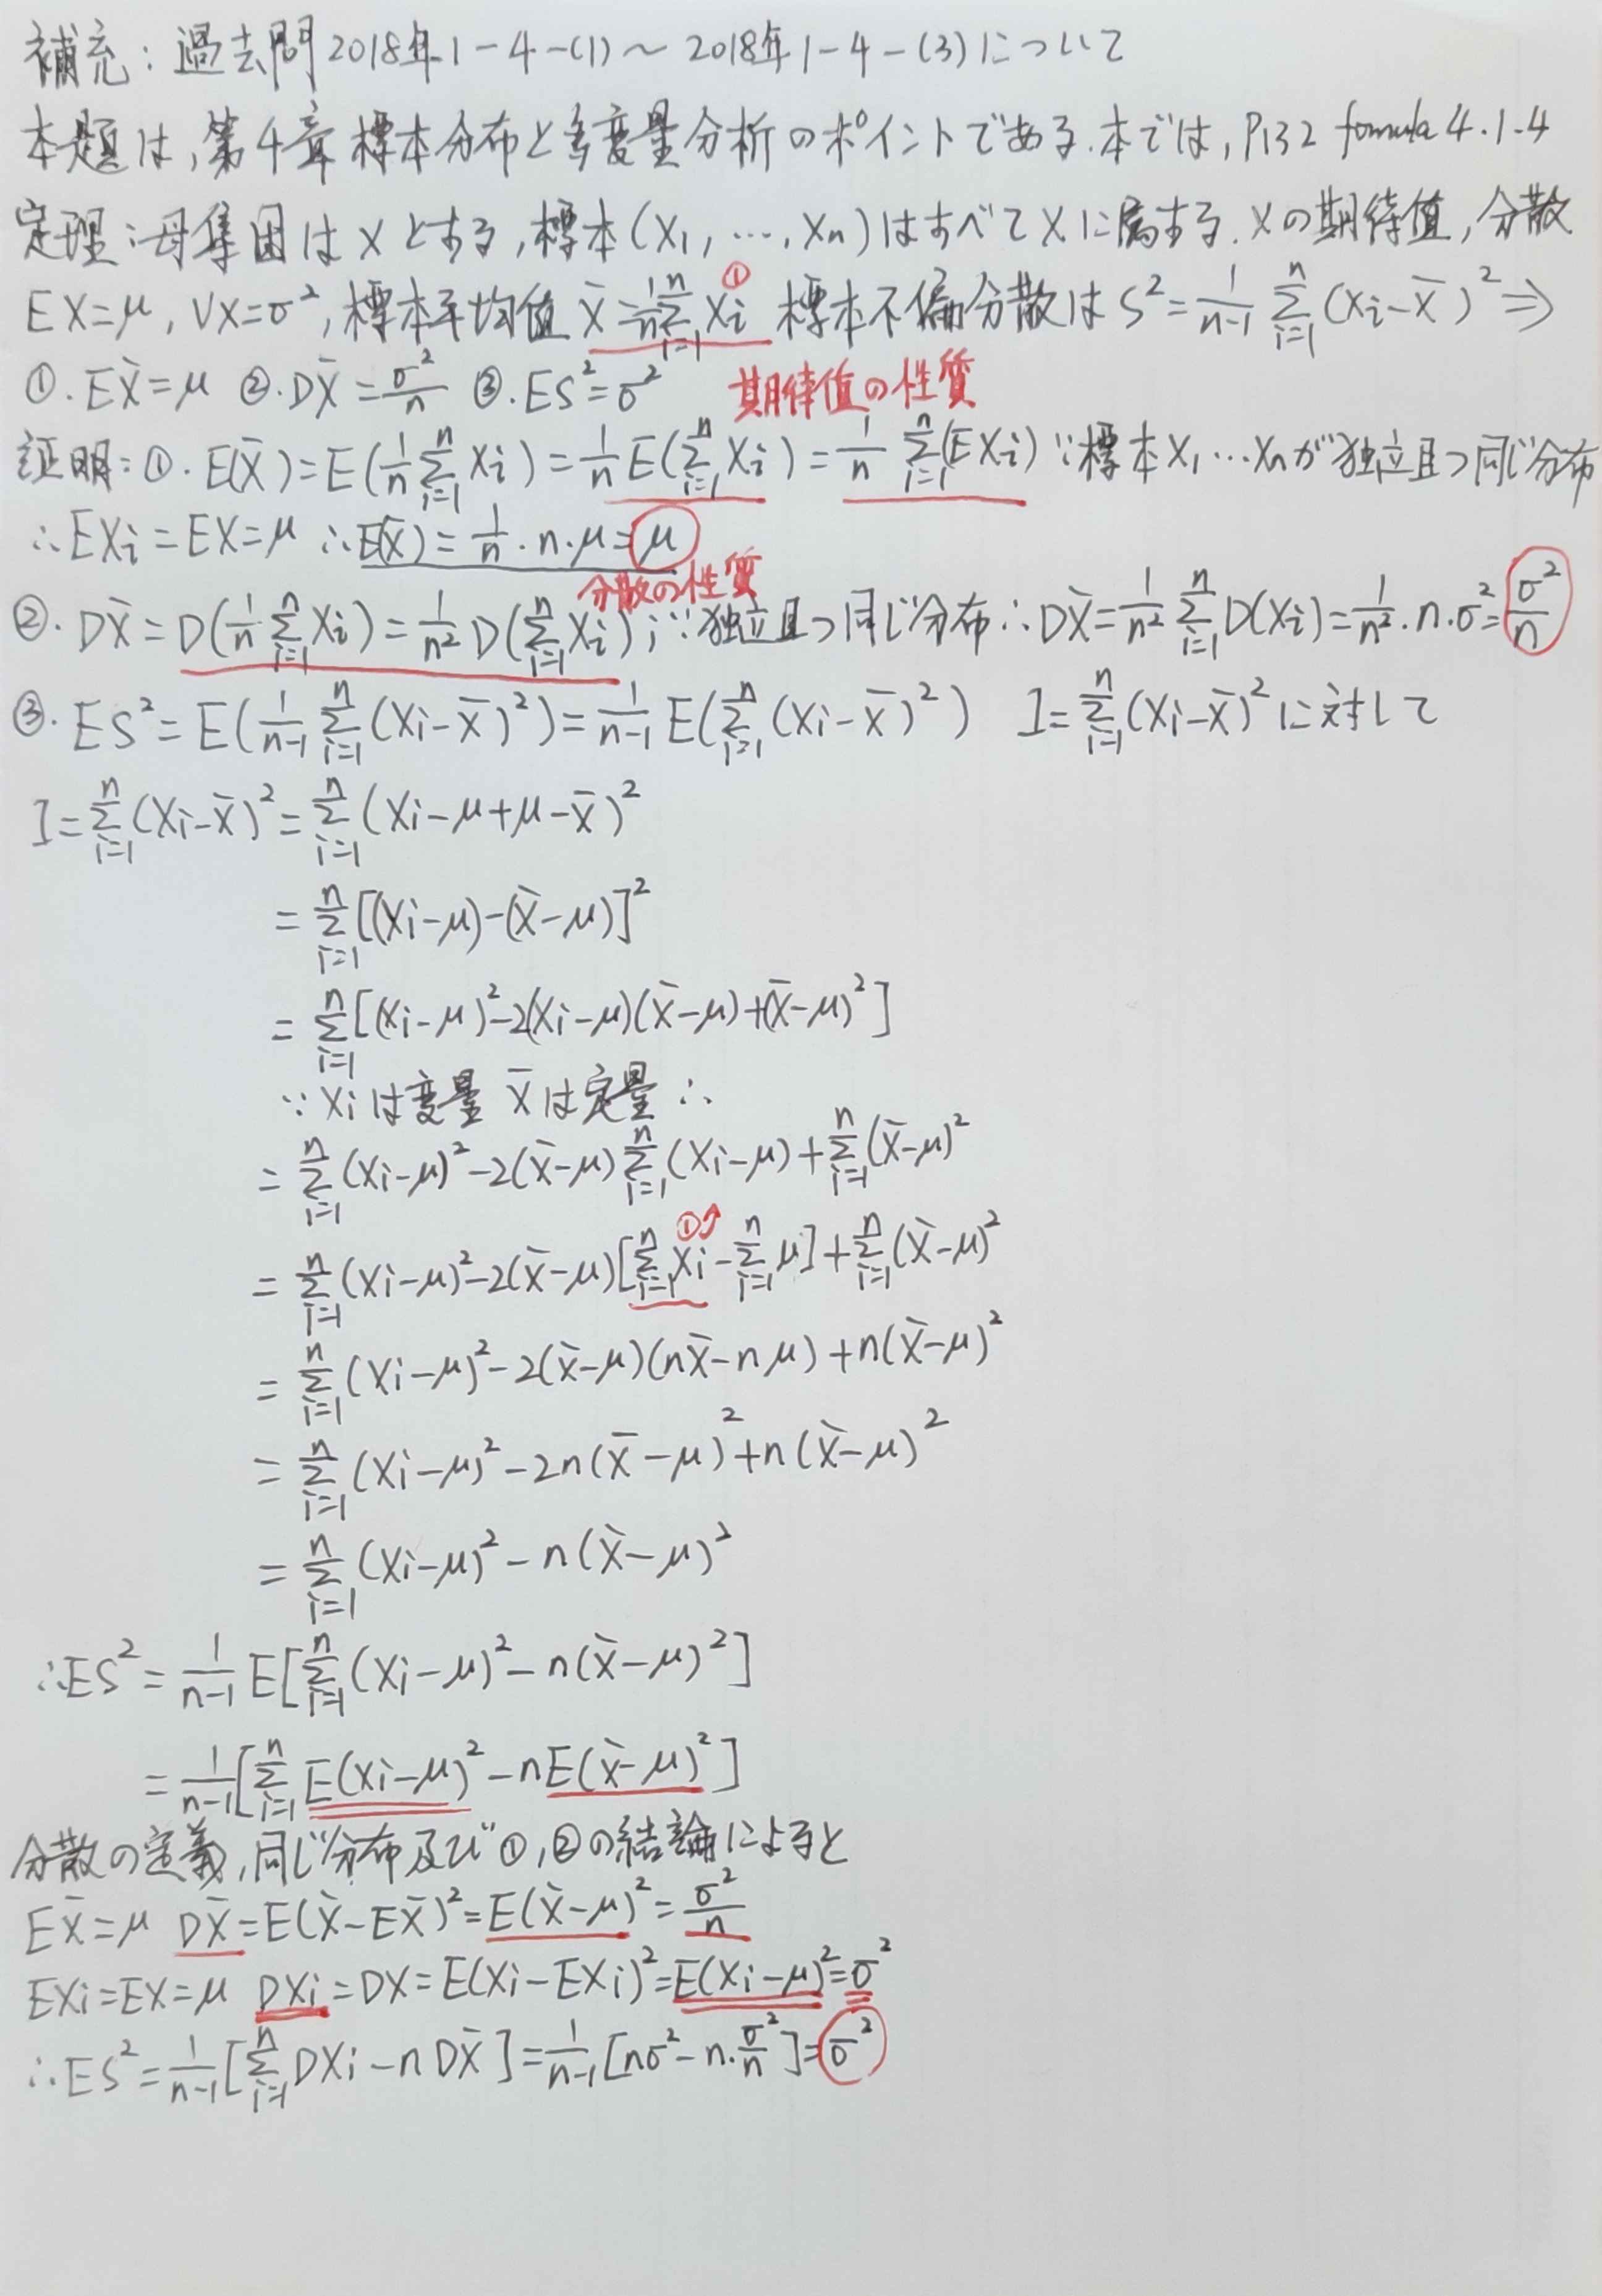 補充：過去問2018年1-4-(1)～2018年1-4-(3)について
本題は,第4章標本分布と多変量分析のポイントである.本では,P132 formula 4.1.4
定理：母集団はXとする,標本(X₁,…,Xn)はすべてXに属する.Xの期待値,分散
EX=μ, VX=σ², 標本平均値 X̄=1/n Σ_{i=1}^{n} Xi ① 標本不偏分散は S²=1/(n-1) Σ_{i=1}^{n} (Xi-X̄)² ⇒
①. EX̄=μ ②. DX̄=σ²/n ③. ES²=σ² 期待値の性質
証明：①. E(X̄)=E(1/n Σ_{i=1}^{n} Xi)=1/n E(Σ_{i=1}^{n} Xi)=1/n Σ_{i=1}^{n} (EXi) ∵標本X₁…Xnが独立且つ同じ分布
∴EXi=EX=μ ∴E(X̄)=1/n·n·μ=μ
分散の性質
②. DX̄=D(1/n Σ_{i=1}^{n} Xi)=1/n² D(Σ_{i=1}^{n} Xi); ∵独立且つ同じ分布 ∴DX̄=1/n² Σ_{i=1}^{n} D(Xi)=1/n²·n·σ²=σ²/n
③. ES²=E(1/(n-1) Σ_{i=1}^{n} (Xi-X̄)²)=1/(n-1) E(Σ_{i=1}^{n} (Xi-X̄)²) I=Σ_{i=1}^{n} (Xi-X̄)²に対して
I=Σ_{i=1}^{n} (Xi-X̄)²=Σ_{i=1}^{n} (Xi-μ+μ-X̄)²
=Σ_{i=1}^{n} [(Xi-μ)-(X̄-μ)]²
=Σ_{i=1}^{n} [(Xi-μ)²-2(Xi-μ)(X̄-μ)+(X̄-μ)²]
∵Xiは変量 X̄は定量 ∴
=Σ_{i=1}^{n} (Xi-μ)²-2(X̄-μ)Σ_{i=1}^{n} (Xi-μ)+Σ_{i=1}^{n} (X̄-μ)²
①↗
=Σ_{i=1}^{n} (Xi-μ)²-2(X̄-μ)[Σ_{i=1}^{n} Xi-Σ_{i=1}^{n} μ]+Σ_{i=1}^{n} (X̄-μ)²
=Σ_{i=1}^{n} (Xi-μ)²-2(X̄-μ)(nX̄-nμ)+n(X̄-μ)²
=Σ_{i=1}^{n} (Xi-μ)²-2n(X̄-μ)²+n(X̄-μ)²
=Σ_{i=1}^{n} (Xi-μ)²-n(X̄-μ)²
∴ES²=1/(n-1) E[Σ_{i=1}^{n} (Xi-μ)²-n(X̄-μ)²]
=1/(n-1)[Σ_{i=1}^{n} E(Xi-μ)²-nE(X̄-μ)²]
分散の定義,同じ分布及び①,②の結論によると
EX̄=μ DX̄=E(X̄-EX̄)²=E(X̄-μ)²=σ²/n
EXi=EX=μ DXi=DX=E(Xi-EXi)²=E(Xi-μ)²=σ²
∴ES²=1/(n-1)[Σ_{i=1}^{n} DXi-nDX̄]=1/(n-1)[nσ²-n·σ²/n]=σ²